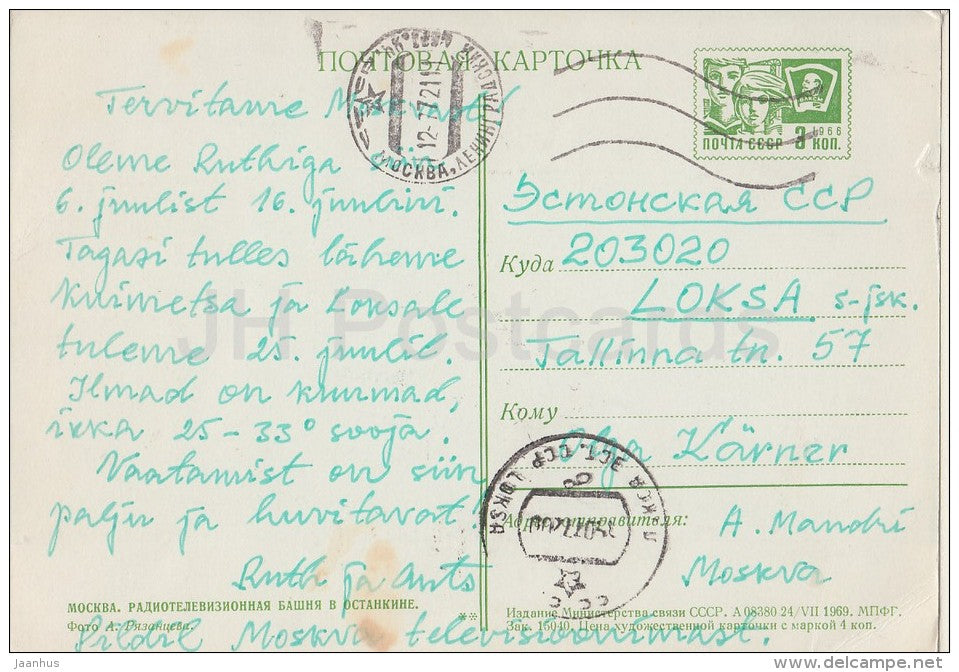 ПОЧТОВАЯ КАРТОЧКА
ПОЧТА СССР 3 КОП.
1966
МОСКВА, ЛЕНИНГРАДСКИЙ
12-7 7 21
Tervitame Moskvast!
Oleme Ruthiga siin
6. juulist 16. juulini.
Tagasi tulles läheme
Kuimetsa ja Loksale
tuleme 25. juulil.
Ilmad on kuumad,
ikka 25-33° sooja.
Vaatamist on siin
palju ja huvitavat!
Ruth ja Ants
Pildil Moskva televisioonimast.
МОСКВА. РАДИОТЕЛЕВИЗИОННАЯ БАШНЯ В ОСТАНКИНЕ.
Фото А. Рязанцева.
**
Эстонская ССР
203020
Куда
LOKSA s-jsk.
Tallinna tn. 57
Кому
Olga Kärner
ЭСТ. ССР LOKSA
Адрес отправителя:
A. Mandri
Moskva
Издание Министерства связи СССР. А 08380 24/VII 1969. МПФГ.
Зак. 15040. Цена художественной карточки с маркой 4 коп.
JH Postcards
jaanhus
www.delcampe.net